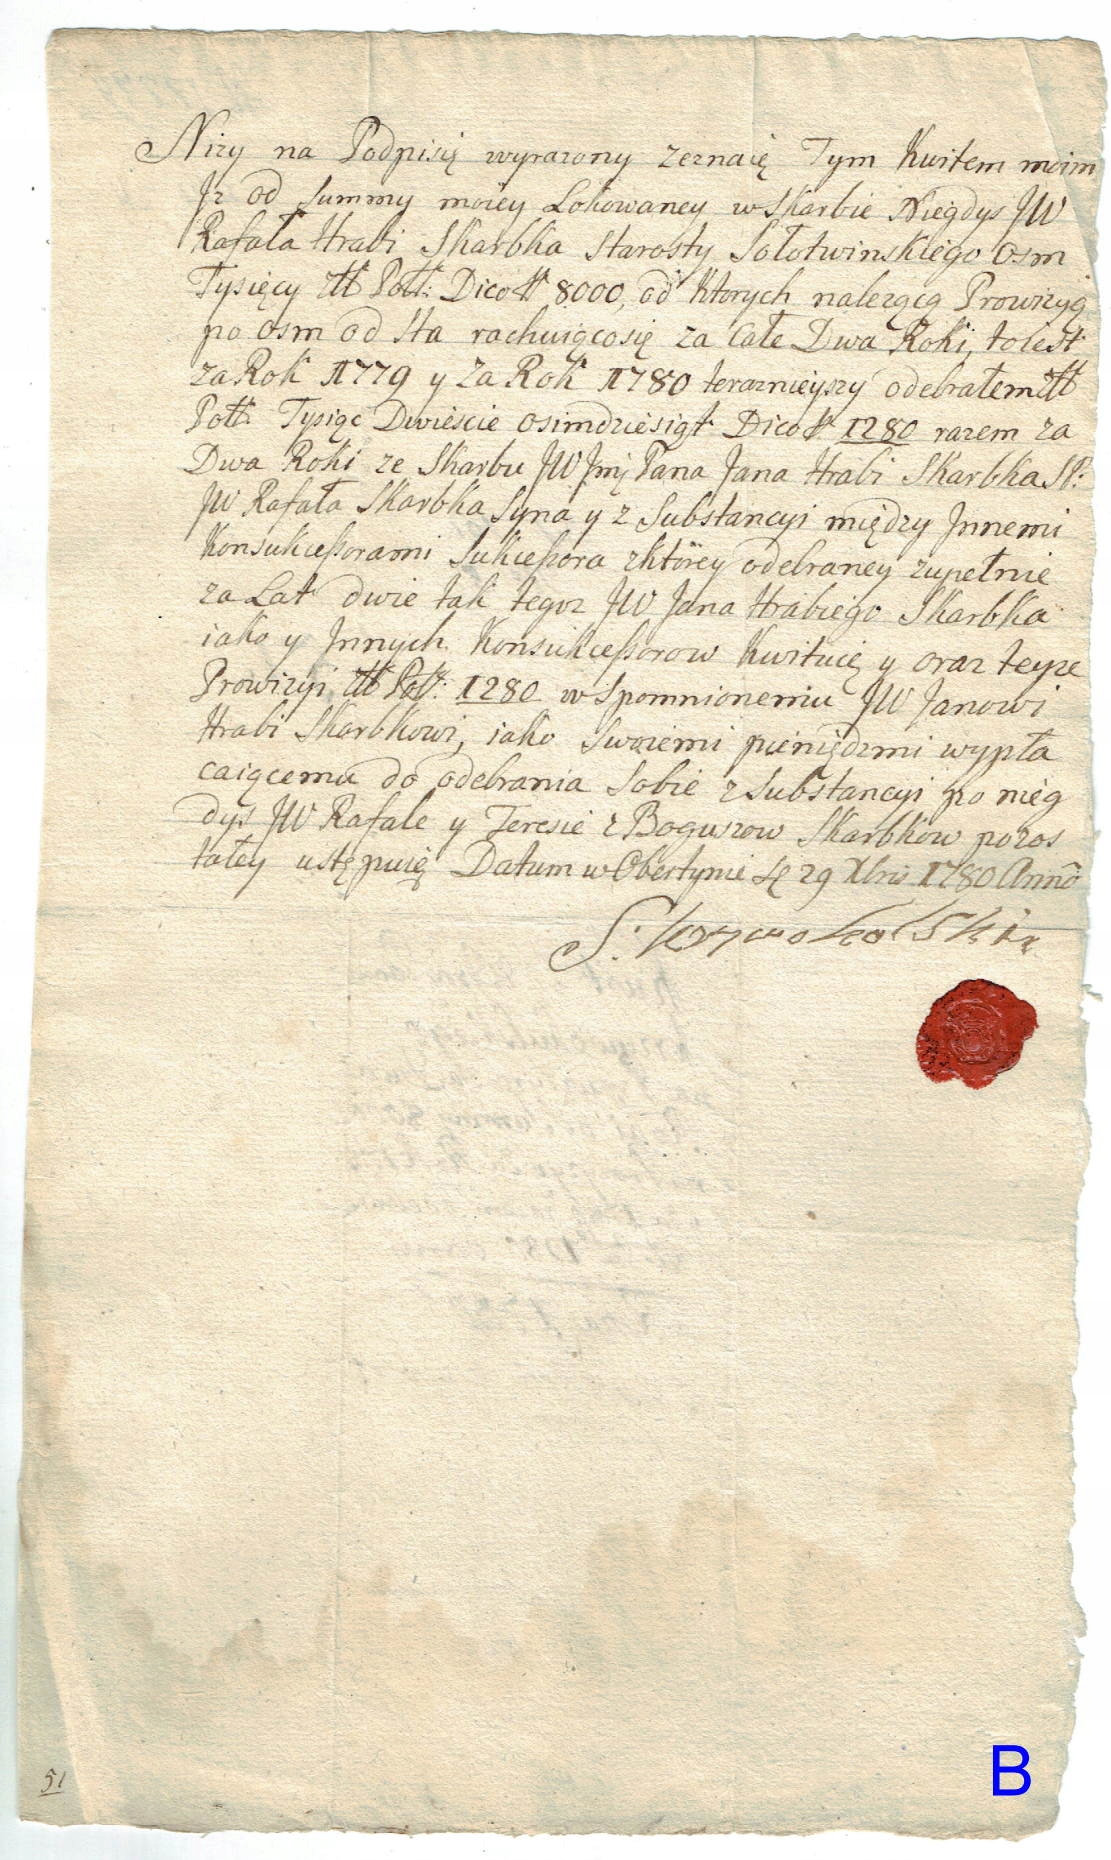 Niży na Podpisię wyrażony zeznaię Tym Kwitem moim
Jż od Summy moiey Lokowaney w Skarbie Niegdys JW
Rafała Hrabi Skarbka Starosty Sołotwinskiego Osm
Tysięcy Złł Poll: Dico ff 8000, od ktorych należącą Prowizyą
po osm od Sta rachuiącosię za Całe Dwa Roki, toiest
za Rok 1779 y Za Rok 1780 teraznieyszy odebrałem Złł
Poll: Tysiąc Dwieście osimdziesiąt Dico ff 1280 razem za
Dwa Roki ze Skarbu JW Jmj Pana Jana Hrabi Skarbka SP:
JW Rafała Skarbka Syna y z Substancyi między Jnnemi
Konsukceßorami Sukceßora zktörey odebraney zupełnie
za Lat dwie tak tegoz JW Jana Hrabiego Skarbka
iako y Jnnych Konsukceßorow Kwituię y oraz teyże
Prowizyi Złł Pol: 1280 wspomnionemu JW Janowi
Hrabi Skarbkowi, iako Swoiemi pieniędzmi wypła
caiącemu do odebrania Sobie z Substancyi po nieg
dys JW Rafale y Teresie z Boguszow Skarbkow pozos
tałey ustępuię Datum w Obertynie 29 Xbris 1780 Anno
S.
51
B